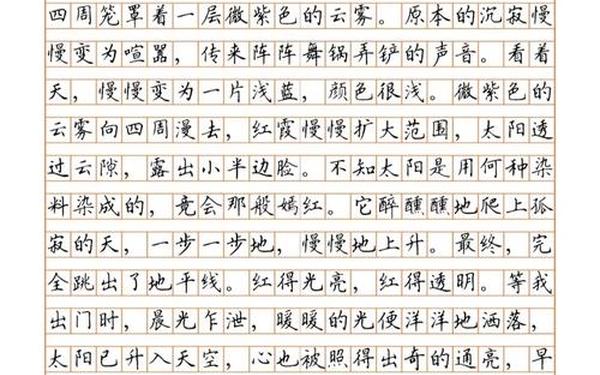 四周笼罩着一层微紫色的云雾。原本的沉寂慢
慢变为喧嚣，传来阵阵舞锅弄铲的声音。看着
天，慢慢变为一片浅蓝，颜色很浅。微紫色的
云雾向四周漫去，红霞慢慢扩大范围，太阳透
过云隙，露出小半边脸。不知太阳是用何种染
料染成的，竟会那般嫣红。它醉醺醺地爬上孤
寂的天，一步一步地，慢慢地上升。最终，完
全跳出了地平线。红得光亮，红得透明。等我
出门时，晨光乍泄，暖暖的光便洋洋地洒落，
太阳已升入天空，心也被照得出奇的通亮，早